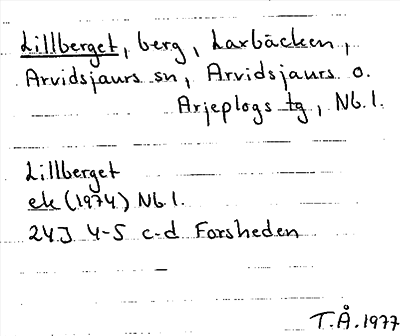 Lillberget, berg, Laxbäcken,
Arvidsjaurs sn, Arvidsjaurs o.
Arjeplogs tg, Nb. l.
Lillberget
ek (1974) Nb. l.
24J 4-5 c-d Forsheden
T.Å. 1977